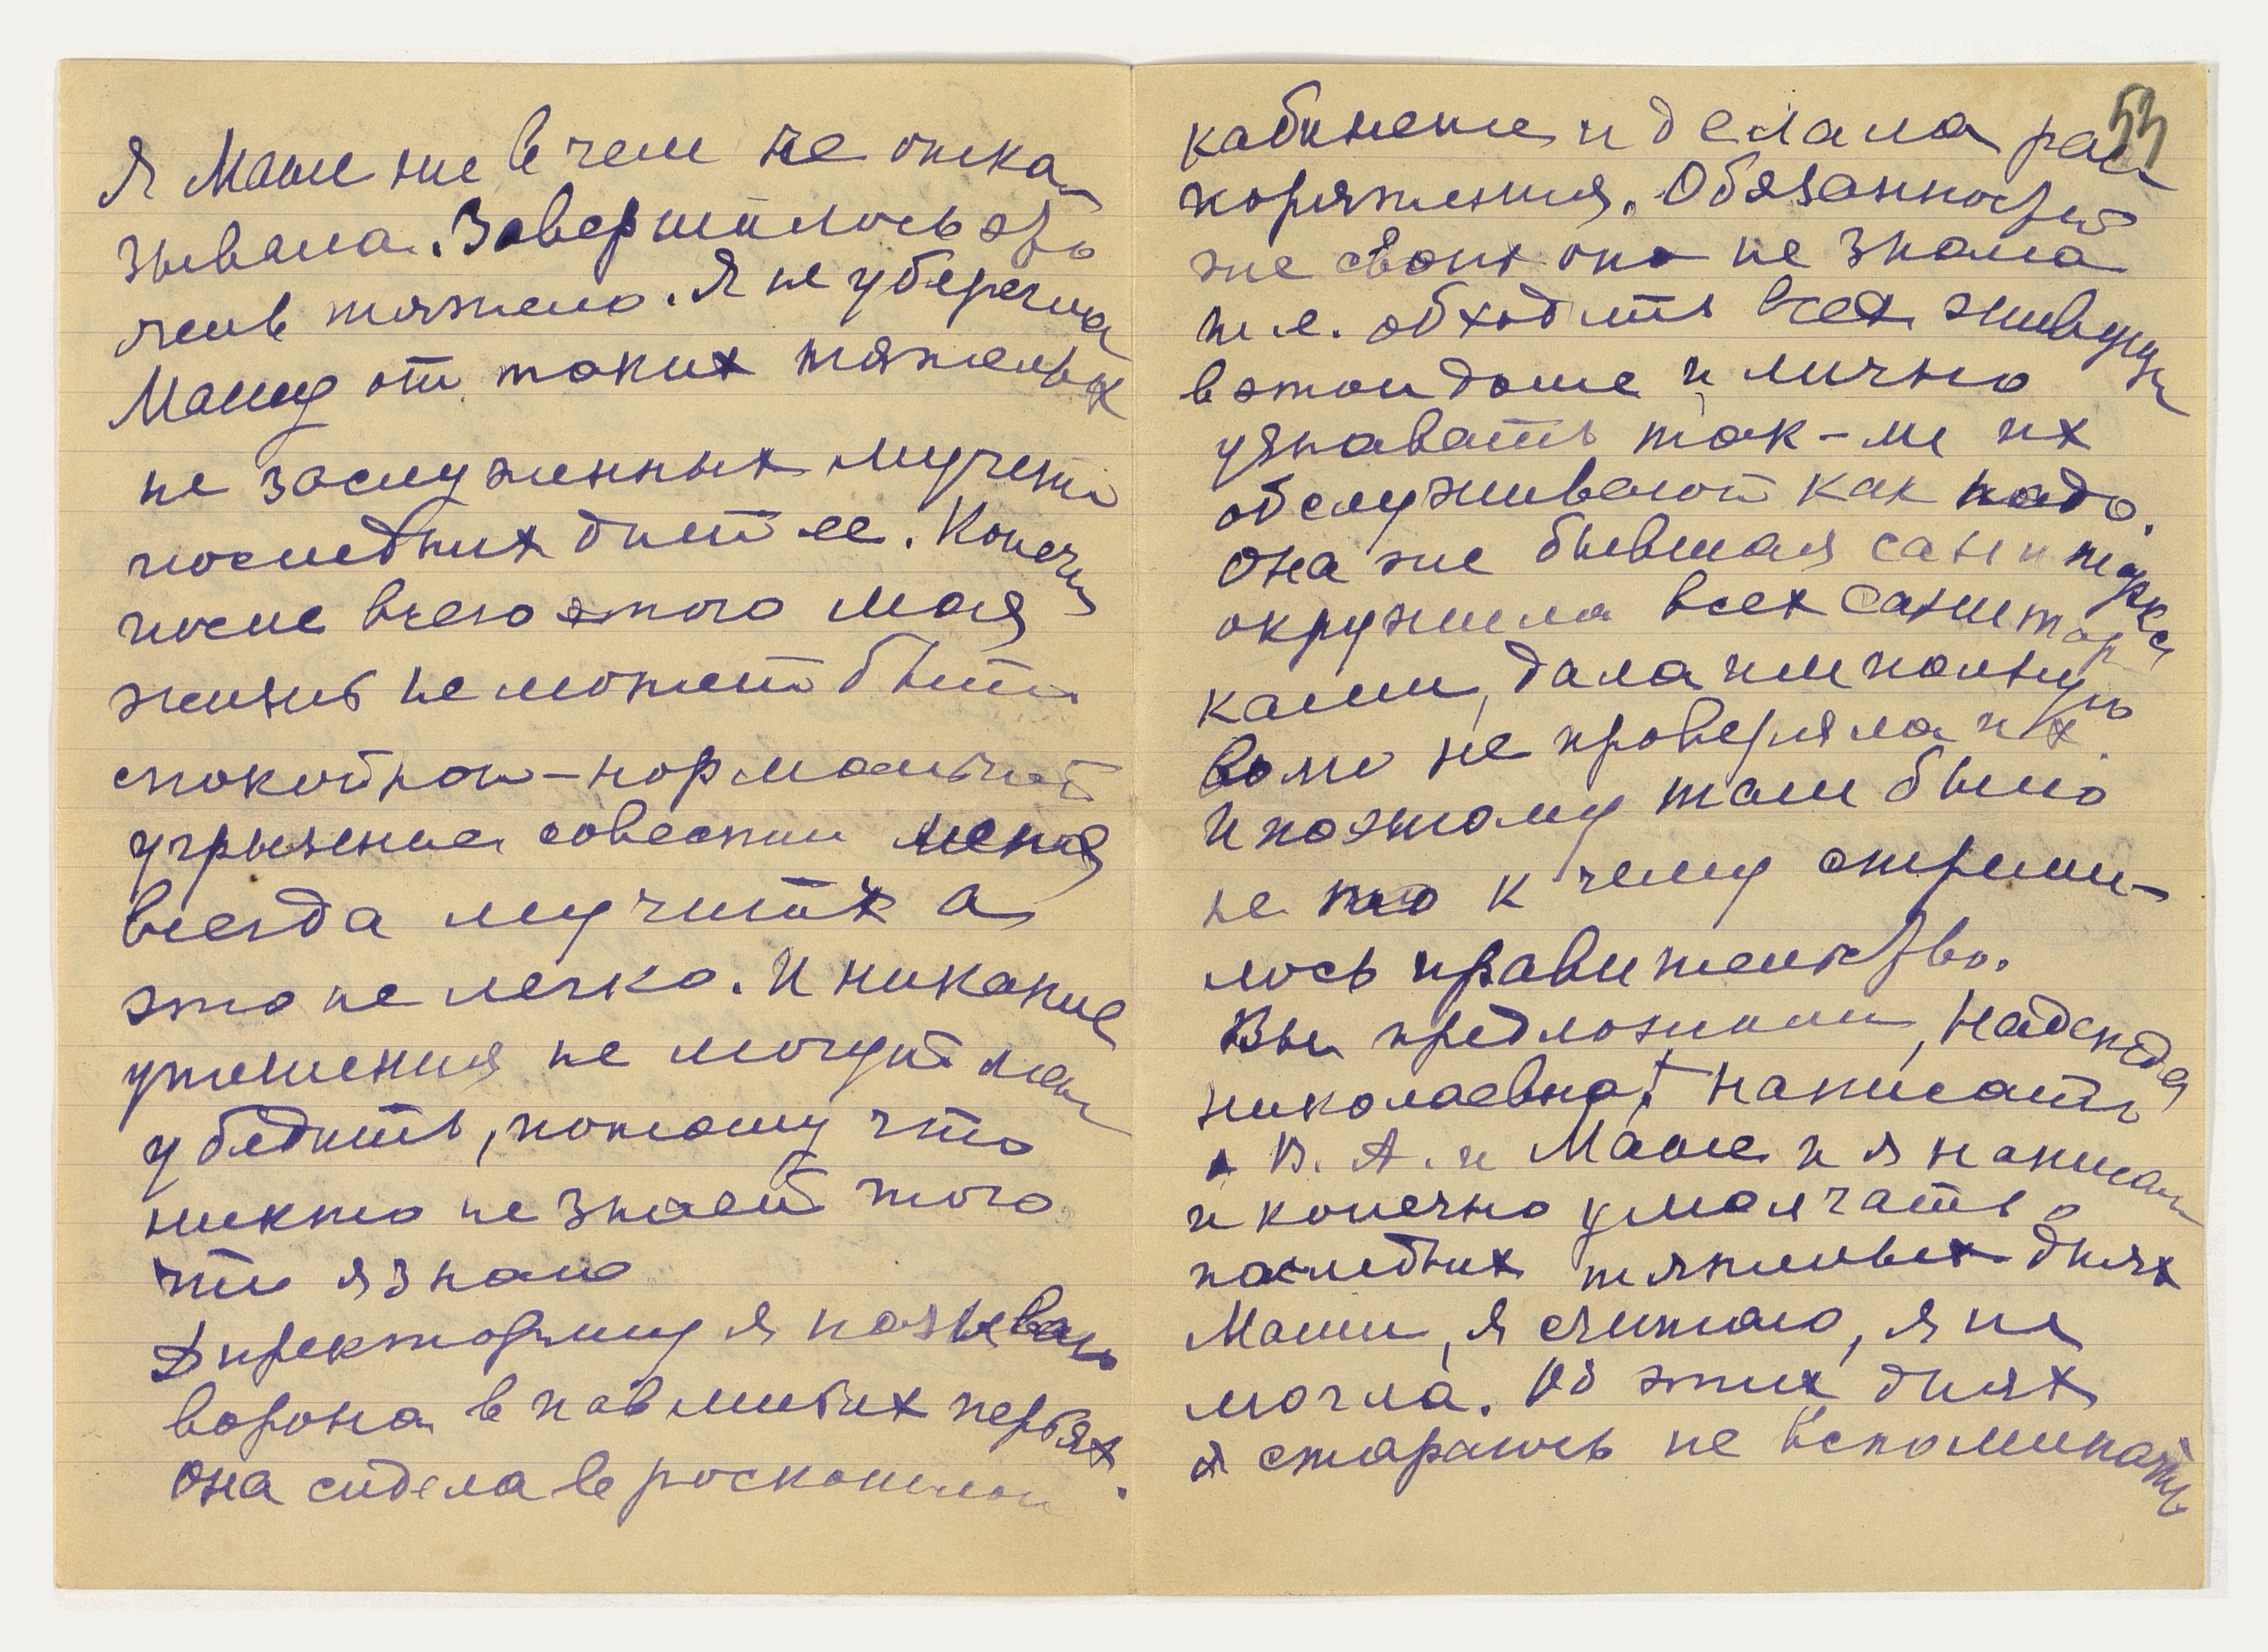 Я Маше ни в чем не отка-
зывала. Завершилось это
очень тяжело. Я не уберегла
Машу от таких тяжелых
не заслуженных мучений
последних дней ее. Конечно
после всего этого моя
жизнь не может быть
спокойной-нормальной
угрызение совести меня
всегда мучит, а
это не легко. И никакие
утешения не могут меня
убедить, потому что
никто не знает того
что я знаю
Директоршу я называю
ворона в павлиньих перьях.
Она сидела в роскошном
53
кабинете и делала рас-
поряжения. Обязанностей
же своих она не знала
т.е. обходить всех живущих
в этом доме и лично
узнавать так-ли их
обслуживают как надо.
Она же бывшая санитарка
окружила всех санитар
ками, дала им полную
волю не проверяла их.
И поэтому там было
не то к чему стреми-
лось правительство.
Вы предложили, Надежда
Николаевна, написать
В. А. и Маше и я написала
и конечно умолчать о
последних тяжелых днях
Маши, я считаю, я не
могла. Об этих днях
я стараюсь не вспоминать